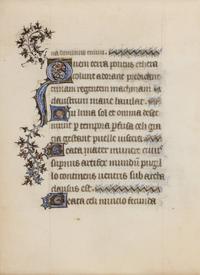 na dominus tecum.
Quem terra pontus ethera
colunt adorant predicant
trinam regentem machinam
claustrum marie baiulat.
Cui luna sol et omnia deser
uiunt per tempora perfusa celi gra
cia gestant puelle uiscera
Beata mater munere cuius
supernus artifex mundum pugil
lo continens uentris sub archa
clausus est.
Beata celi nuncio fecunda